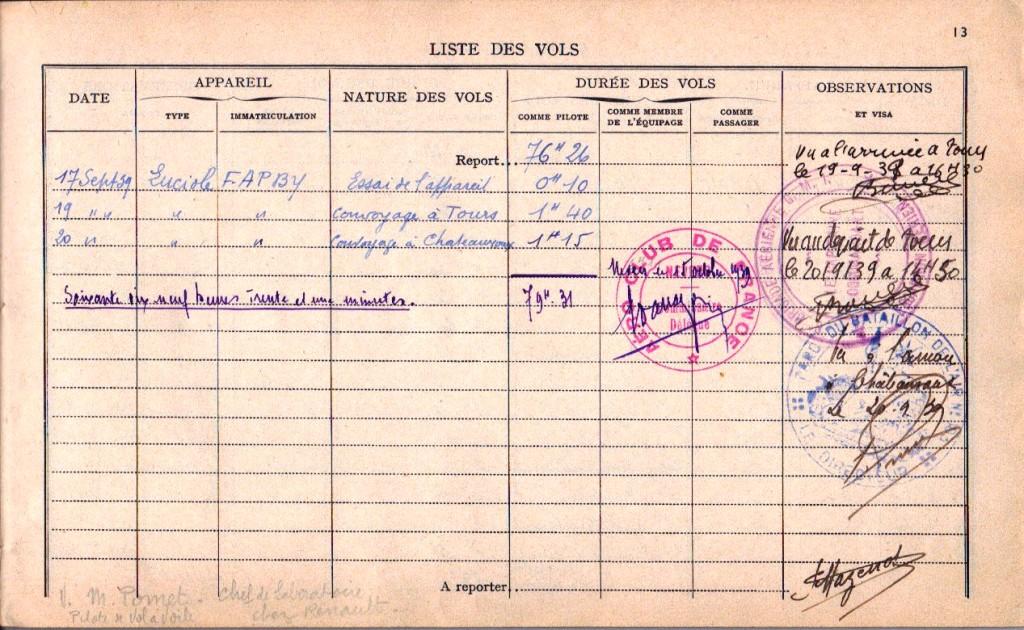 13
LISTE DES VOLS
DATE APPAREIL NATURE DES VOLS DURÉE DES VOLS OBSERVATIONS ET VISA
TYPE IMMATRICULATION COMME PILOTE COMME MEMBRE DE L'ÉQUIPAGE COMME PASSAGER
Report... 76H 26
17 Sept 39 Luciole FAPBY Essai de l'appareil 0H 10
19 " " " " Convoyage à Tours 1H 40
20 " " " Convoyage à Chateauroux 1H 15
Soixante dix neuf heures trente et une minutes. 79H 31
Vu a l'arrivée a Tours
le 19-9-39 a 16H30
Vu au depart de Tours
le 20/9/39 a 14H50
15 octobre 1939
AERO CLUB DE FRANCE
Délégué
PARC DU BATAILLON DE L'AIR
LE DIRECTEUR
Vu à
Châteauroux
le 20.9.39
A reporter
V. M. Pomet - Chef de laboratoire
Pilote de vol à voile chez Renault -